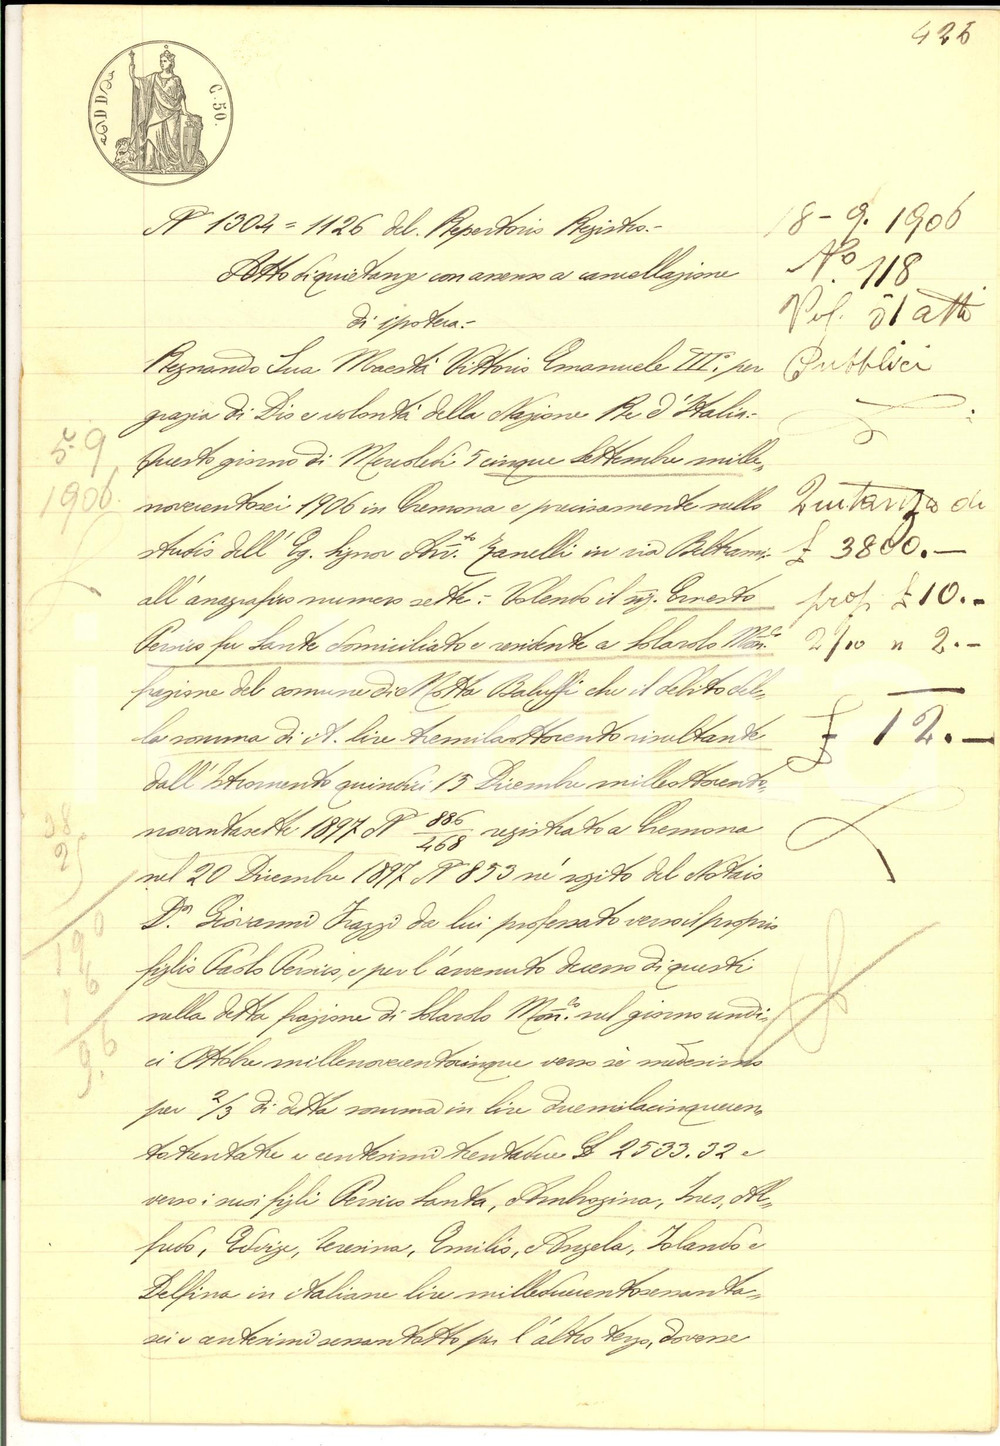 426
C. 50.
N° 1304 = 1126 del. Repertorio Registro.-
Atto di quietanza con assenso a cancellazione
di ipoteca.-
Regnando Sua Maestà Vittorio Emanuele III°. per
grazia di Dio e volontà della Nazione Re d'Italia.-
Questo giorno di Mercoledì 5 cinque Settembre mille-
novecentosei 1906 in Cremona e precisamente nello
studio dell' Eg. Signor Avv.to Zanelli in via Beltrami
all'anagrafico numero sette:- Volendo il sig. Ernesto
Persico fu Sante domiciliato e residente a Solarolo Mon.
frazione del comune di Motta Baluffi che il debito del-
la somma di it. lire tremilaottocento risultante
dall'Istromento quindici 15 Dicembre milleottocento-
novantasette 1897 N° 886/468 registrato a Cremona
nel 20 Dicembre 1897 N° 853 né rogito del Notaio
D.r Giovanni Frazzi da lui professato verso il proprio
figlio Paolo Persico, e per l'avvenuto decesso di questi
nella detta frazione di Solarolo Mon. nel giorno undi-
ci Ottobre millenovecentocinque verso sè medesimo
per 2/3 di detta somma in lire duemilacinquecen-
totrentatre e centesimi trentadue £ 2533.32 e
verso i suoi figli Persico Santa, Ambrogina, Ines, Al-
fredo, Edvige, Teresina, Emilio, Angela, Iolanda e
Delfina in italiane lire milleduecentosessanta-
sei e centesimi sessantotto per l'altro terzo, dovesse
18-9. 1906
N.° 118
Vol. 51 atti
Pubblici
Quitanza di
£ 3800.-
prop £ 10.-
2/10 " 2.-
£ 12.-
5-9
1906.